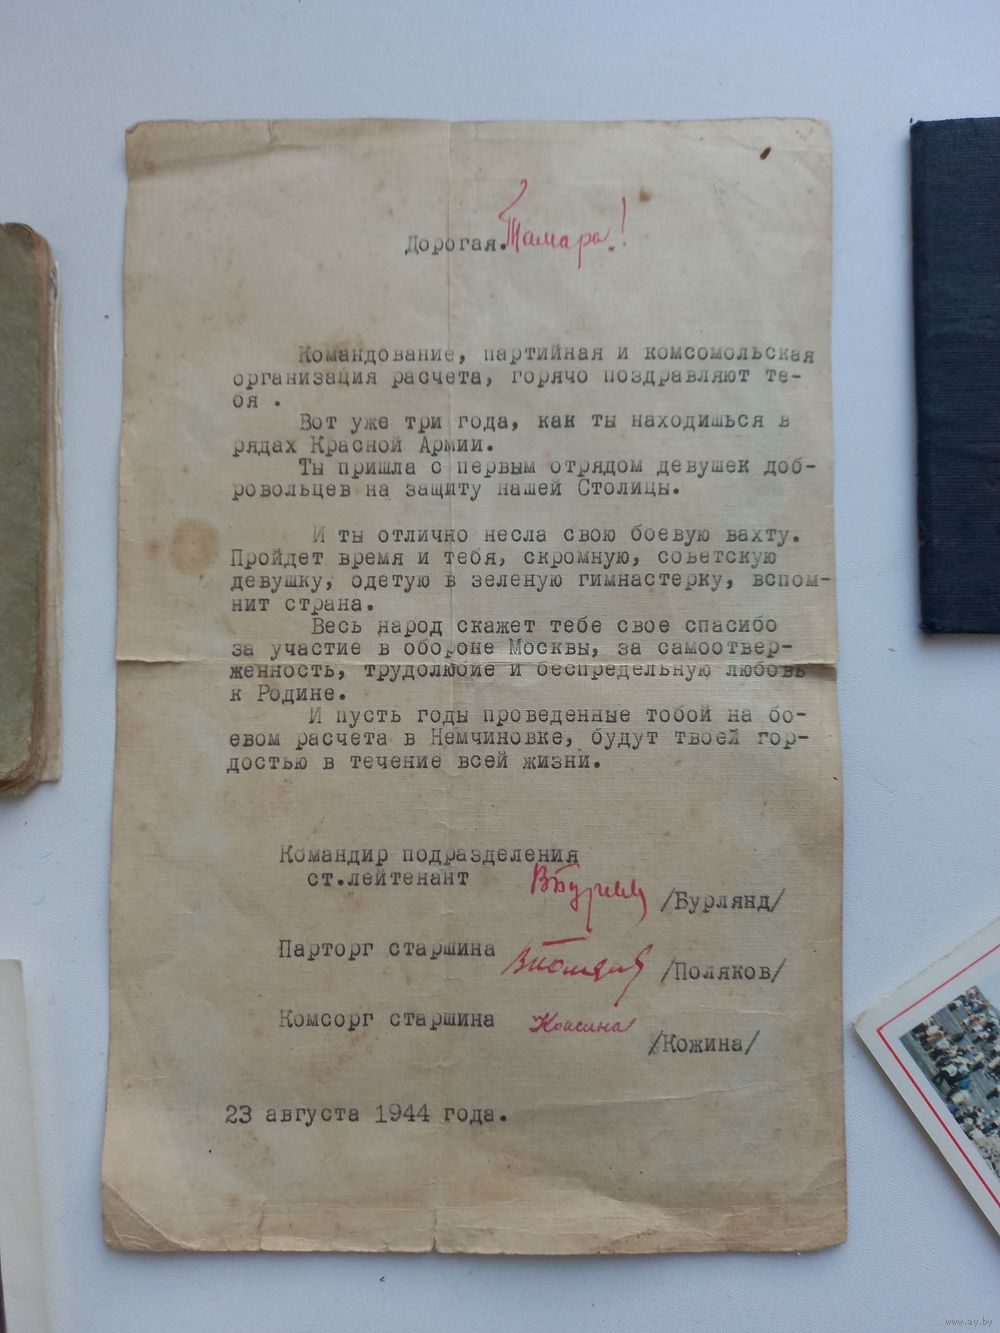 Дорогая. Тамара!
Командование, партийная и комсомольская
организация расчета, горячо поздравляют те-
бя .
Вот уже три года, как ты находишься в
рядах Красной Армии.
Ты пришла с первым отрядом девушек доб-
ровольцев на защиту нашей Столицы.
И ты отлично несла свою боевую вахту.
Пройдет время и тебя, скромную, советскую
девушку, одетую в зеленую гимнастерку, вспом-
нит страна.
Весь народ скажет тебе свое спасибо
за участие в обороне Москвы, за самоотвер-
женность, трудолюбие и беспредельную любовь
к Родине.
И пусть годы проведенные тобой на бо-
евом расчета в Немчиновке, будут твоей гор-
достью в течение всей жизни.
Командир подразделения
ст.лейтенант /Бурлянд/
Парторг старшина /Поляков/
Комсорг старшина Кожина
/Кожина/
23 августа 1944 года.
www.ay.by